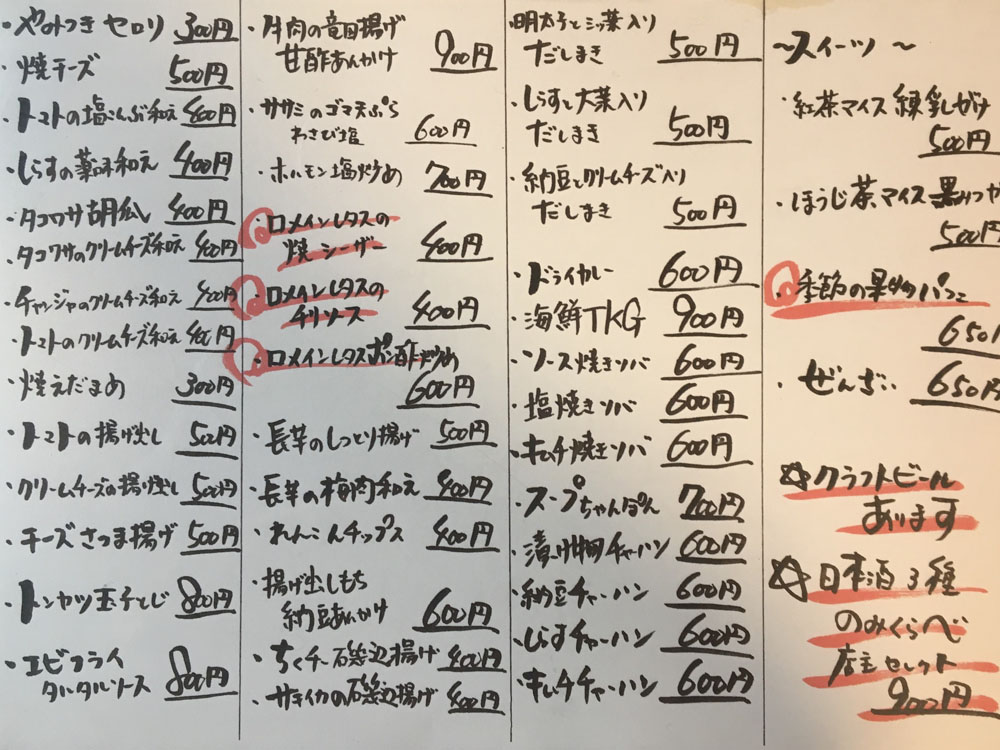 ・やみつき セロリ 300円
・焼チーズ 500円
・トマトの塩こんぶ和え 400円
・しらすの薬味和え 400円
・タコワサ胡瓜 400円
・タコワサのクリームチーズ和え 400円
・チャンジャのクリームチーズ和え 400円
・トマトのクリームチーズ和え 400円
・焼えだまめ 300円
・トマトの揚げ出し 500円
・クリームチーズの揚げ出し 500円
・チーズさつま揚げ 500円
・トンカツ玉子とじ 800円
・エビフライ
タルタルソース 800円
・牛肉の竜田揚げ
甘酢あんかけ 900円
・ササミのゴマ天ぷら
わさび塩 600円
・ホルモン塩炒め 700円
・ロメインレタスの
焼シーザー 400円
・ロメインレタスの
チリソース 400円
・ロメインレタスポン酢炒め
600円
・長芋のしっとり揚げ 500円
・長芋の梅肉和え 400円
・れんこんチップス 400円
・揚げ出しもち
納豆あんかけ 600円
・ちくチー磯辺揚げ 400円
・サキイカの磯辺揚げ 400円
・明太子と三ッ葉入り
だしまき 500円
・しらすと大葉入り
だしまき 500円
・納豆とクリームチーズ入り
だしまき 500円
・ドライカレー 600円
・海鮮TKG 900円
・ソース焼きソバ 600円
・塩焼きソバ 600円
・キムチ焼きソバ 600円
・スープちゃんぽん 700円
・漬け物チャーハン 600円
・納豆チャーハン 600円
・しらすチャーハン 600円
・キムチチャーハン 600円
～スイーツ～
・紅茶アイス 練乳がけ
500円
・ほうじ茶アイス 黒みつか
500円
・季節の果物パフェ
650円
・ぜんざい 650円
☆クラフトビール
あります
☆日本酒3種
のみくらべ
店主セレクト
900円